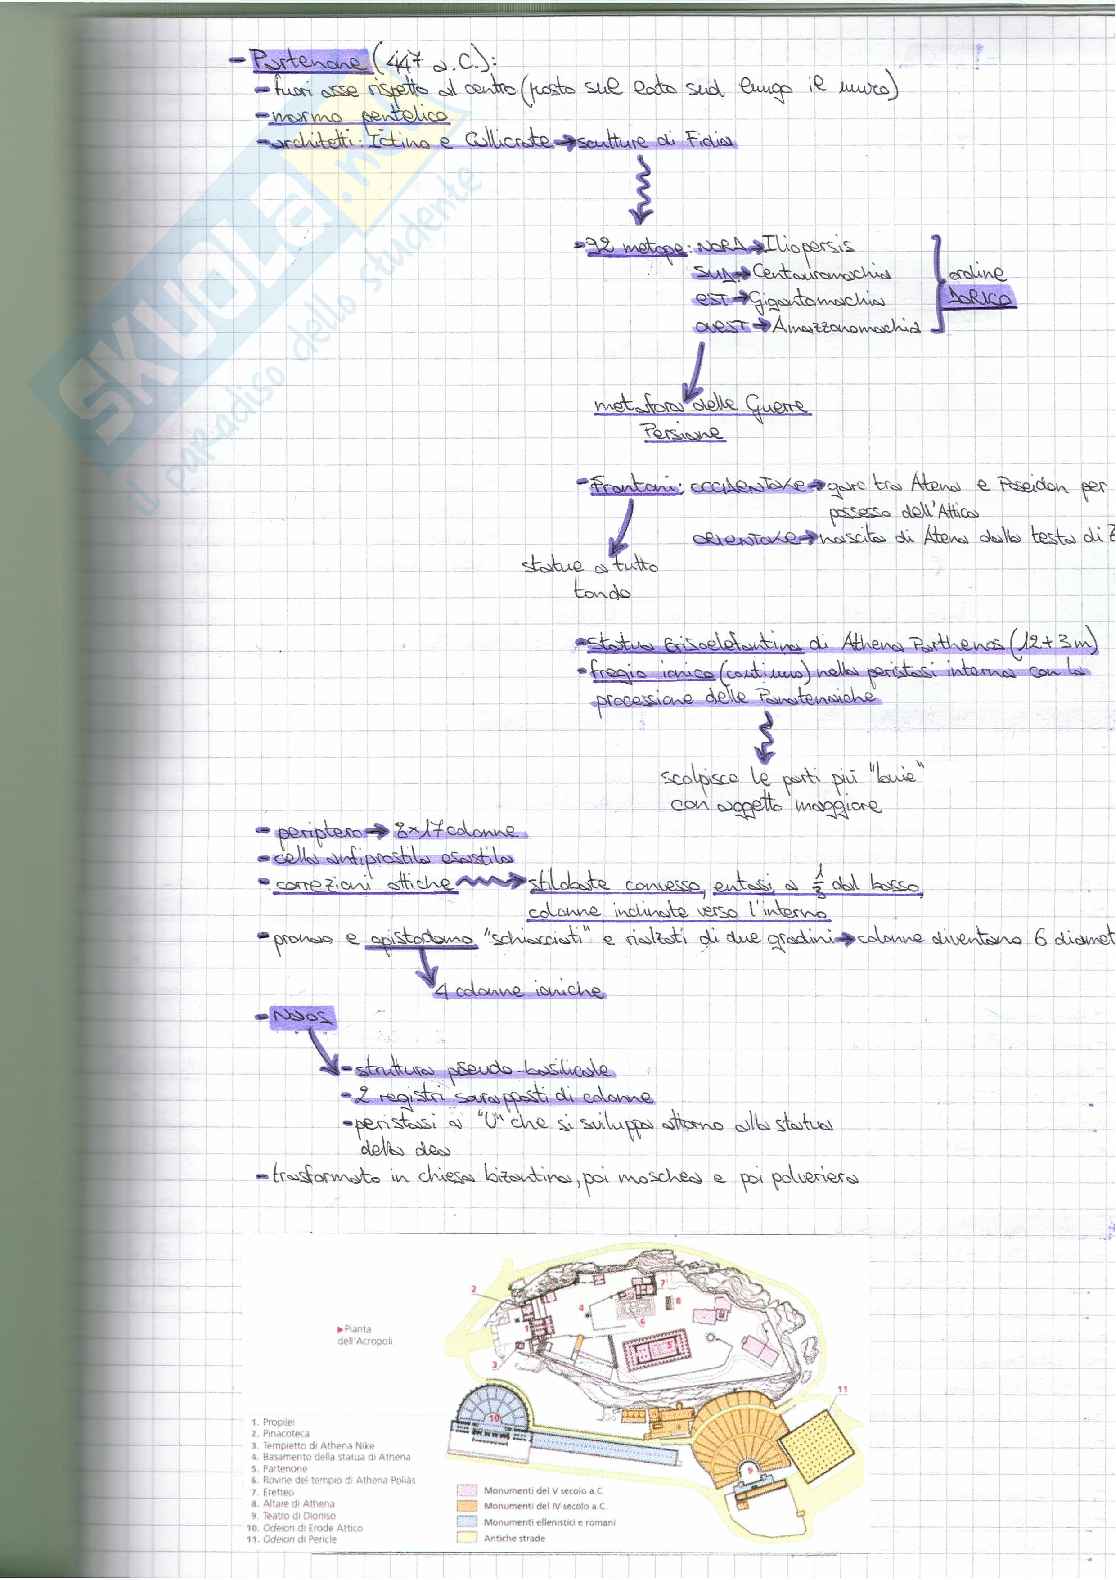 - Partenone (447 a.C.):
- fuori asse rispetto al centro (posto sul lato sud lungo il muro)
- marmo pentelico
- architetti: Ictino e Callicrate → sculture di Fidia
- 92 metope: NORD → Iliopersis
SUD → Centauromachia
EST → Gigantomachia
OVEST → Amazzonomachia
ordine
DORICO
metafora delle Guerre
Persiane
- Frontoni: OCCIDENTALE → gara tra Atena e Poseidon per
possesso dell'Attica
ORIENTALE → nascita di Atena dalla testa di Z
statue a tutto
tondo
- statua Crisoelefantina di Athena Parthenos (12+3m)
- fregio ionico (continuo) nella peristasi interna con la
processione delle Panatenaiche
scolpisce le parti più "buie"
con aggetto maggiore
- periptero → 8x17 colonne
- cella anfiprostila esastila
- correzioni ottiche → stilobate convesso, entasi a 1/3 dal basso,
colonne inclinate verso l'interno
- pronao e opistodomo "schiacciati" e rialzati di due gradini → colonne diventano 6 diamet
4 colonne ioniche
- Naos
- struttura pseudo-basilicale
- 2 registri sovrapposti di colonne
- peristasi a "U" che si sviluppa attorno alla statua
della dea
- trasformato in chiesa bizantina, poi moschea e poi polveriera
SKUOLA.net
il paradiso dello studente
▶Pianta
dell'Acropoli
1. Propilei
2. Pinacoteca
3. Tempietto di Athena Nike
4. Basamento della statua di Athena
5. Partenone
6. Rovine del tempio di Athena Poliàs
7. Eretteo
8. Altare di Athena
9. Teatro di Dioniso
10. Odeion di Erode Attico
11. Odeion di Pericle
Monumenti del V secolo a.C.
Monumenti del IV secolo a.C.
Monumenti ellenistici e romani
Antiche strade
2
7
4
8
6
1
5
3
10
11
9